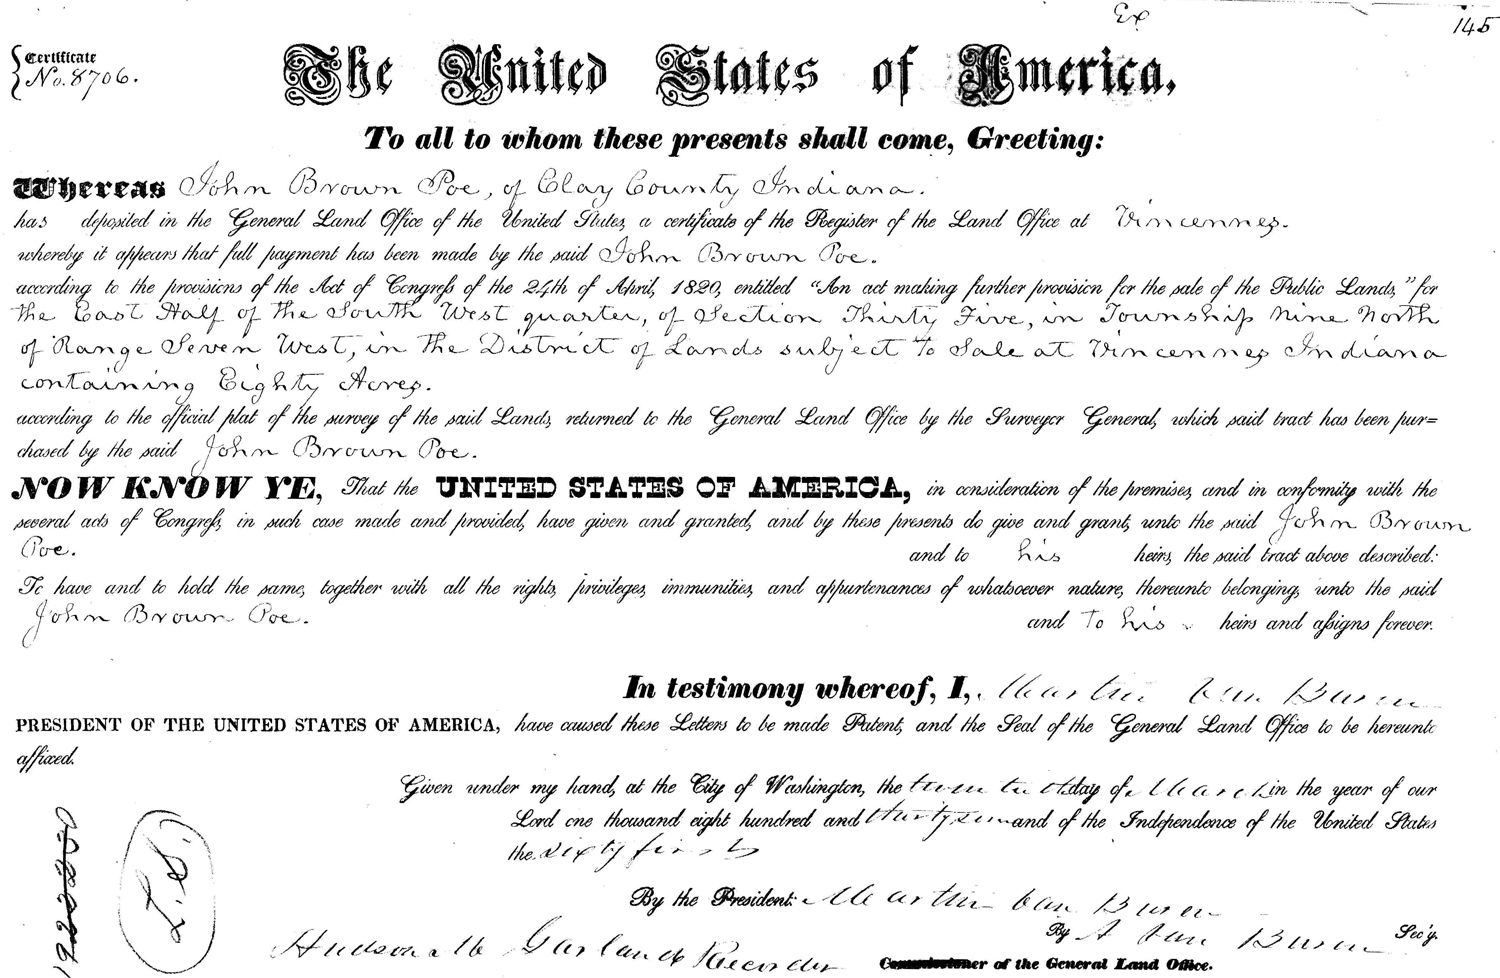 Ex
145
Certificate
No. 8706.
The United States of America,
To all to whom these presents shall come, Greeting:
Whereas John Brown Poe, of Clay County Indiana.
has deposited in the General Land Office of the United States, a certificate of the Register of the Land Office at Vincennes.
whereby it appears that full payment has been made by the said John Brown Poe.
according to the provisions of the Act of Congress of the 24th of April, 1820, entitled "An act making further provision for the sale of the Public Lands," for
the East Half of the South West quarter, of Section Thirty Five, in Township Nine North
of Range Seven West, in the District of Lands subject to Sale at Vincennes Indiana
containing Eighty Acres.
according to the official plat of the survey of the said Lands, returned to the General Land Office by the Surveyor General, which said tract has been pur=
chased by the said John Brown Poe.
NOW KNOW YE, That the UNITED STATES OF AMERICA, in consideration of the premises, and in conformity with the
several acts of Congress, in such case made and provided, have given and granted, and by these presents do give and grant, unto the said John Brown
Poe. and to his heirs, the said tract above described:
To have and to hold the same, together with all the rights, privileges, immunities, and appurtenances of whatsoever nature, thereunto belonging, unto the said
John Brown Poe. and to his heirs and assigns forever.
In testimony whereof, I, Martin Van Buren
PRESIDENT OF THE UNITED STATES OF AMERICA, have caused these Letters to be made Patent, and the Seal of the General Land Office to be hereunto
affixed.
Given under my hand, at the City of Washington, the twentieth day of March in the year of our
Lord one thousand eight hundred and thirty seven and of the Independence of the United States
the sixty first
By the President: Martin Van Buren
By A Van Buren Sec'y.
Hudson M Garland Recorder
Commissioner of the General Land Office.
L.S.